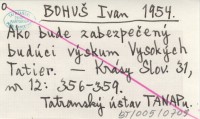 BOHUŠ Ivan 1954.
Ako bude zabezpečený
budúci výskum Vysokých
Tatier. — Krásy Slov. 31,
nr 12: 356-359.
Tatranský ústav TANAPu.
BT/005/0703